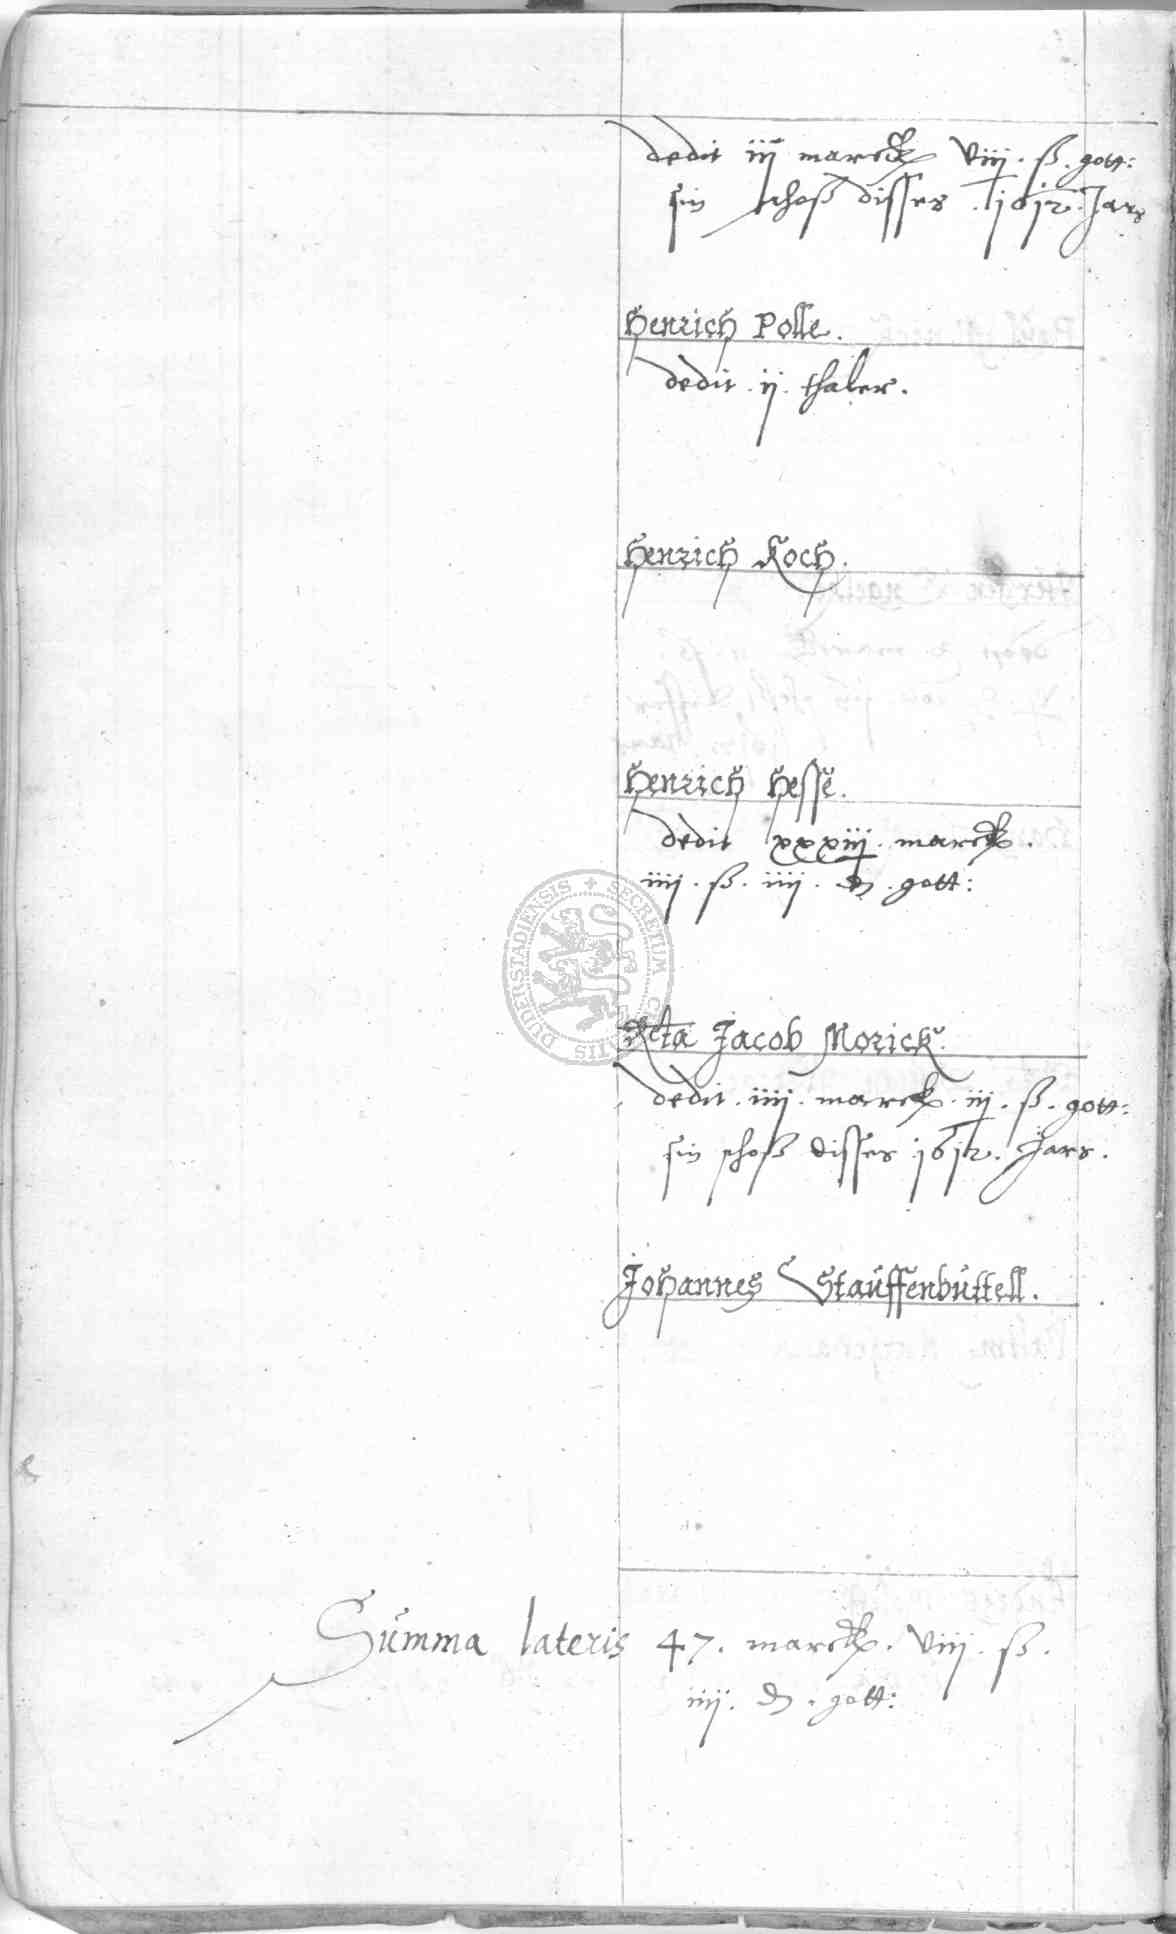 dedit iij marck viij. ß. gott:
sin schoß disses .1612. Jars
Henrich Polle.
dedit .ij. thaler.
Henrich Koch.
Henrich Hesse.
dedit xxxiij. marck.
iiij. ß. iiij. d. gott:
DUDERSTADIENSIS + SECRETUM
Rcta Jacob Morick.
dedit .iiij. marck. iij. ß. gott:
sin schoß disses 1612. Jars.
Johannes Stauffenbuttell.
Summa lateris 47. marck. viij. ß.
iiij. d. gott: